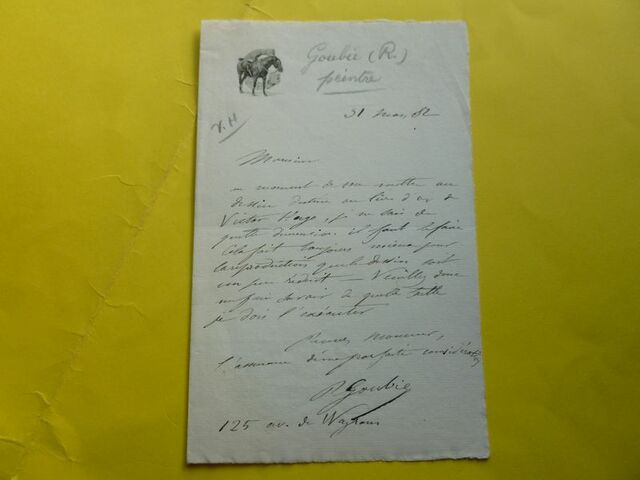 Goubie (R.)
peintre
31 mars 82
V. H
Monsieur
au moment de me mettre au
dessin destiné au livre d'or de
Victor Hugo, je ne sais de
quelle dimension il faut le faire
Cela fait toujours mieux pour
la reproduction que le dessin soit
un peu réduit — Veuillez donc
me faire savoir de quelle taille
je dois l'exécuter
Recevez, Monsieur,
l'assurance d'une parfaite considération
R Goubie
125 av. de Wagram